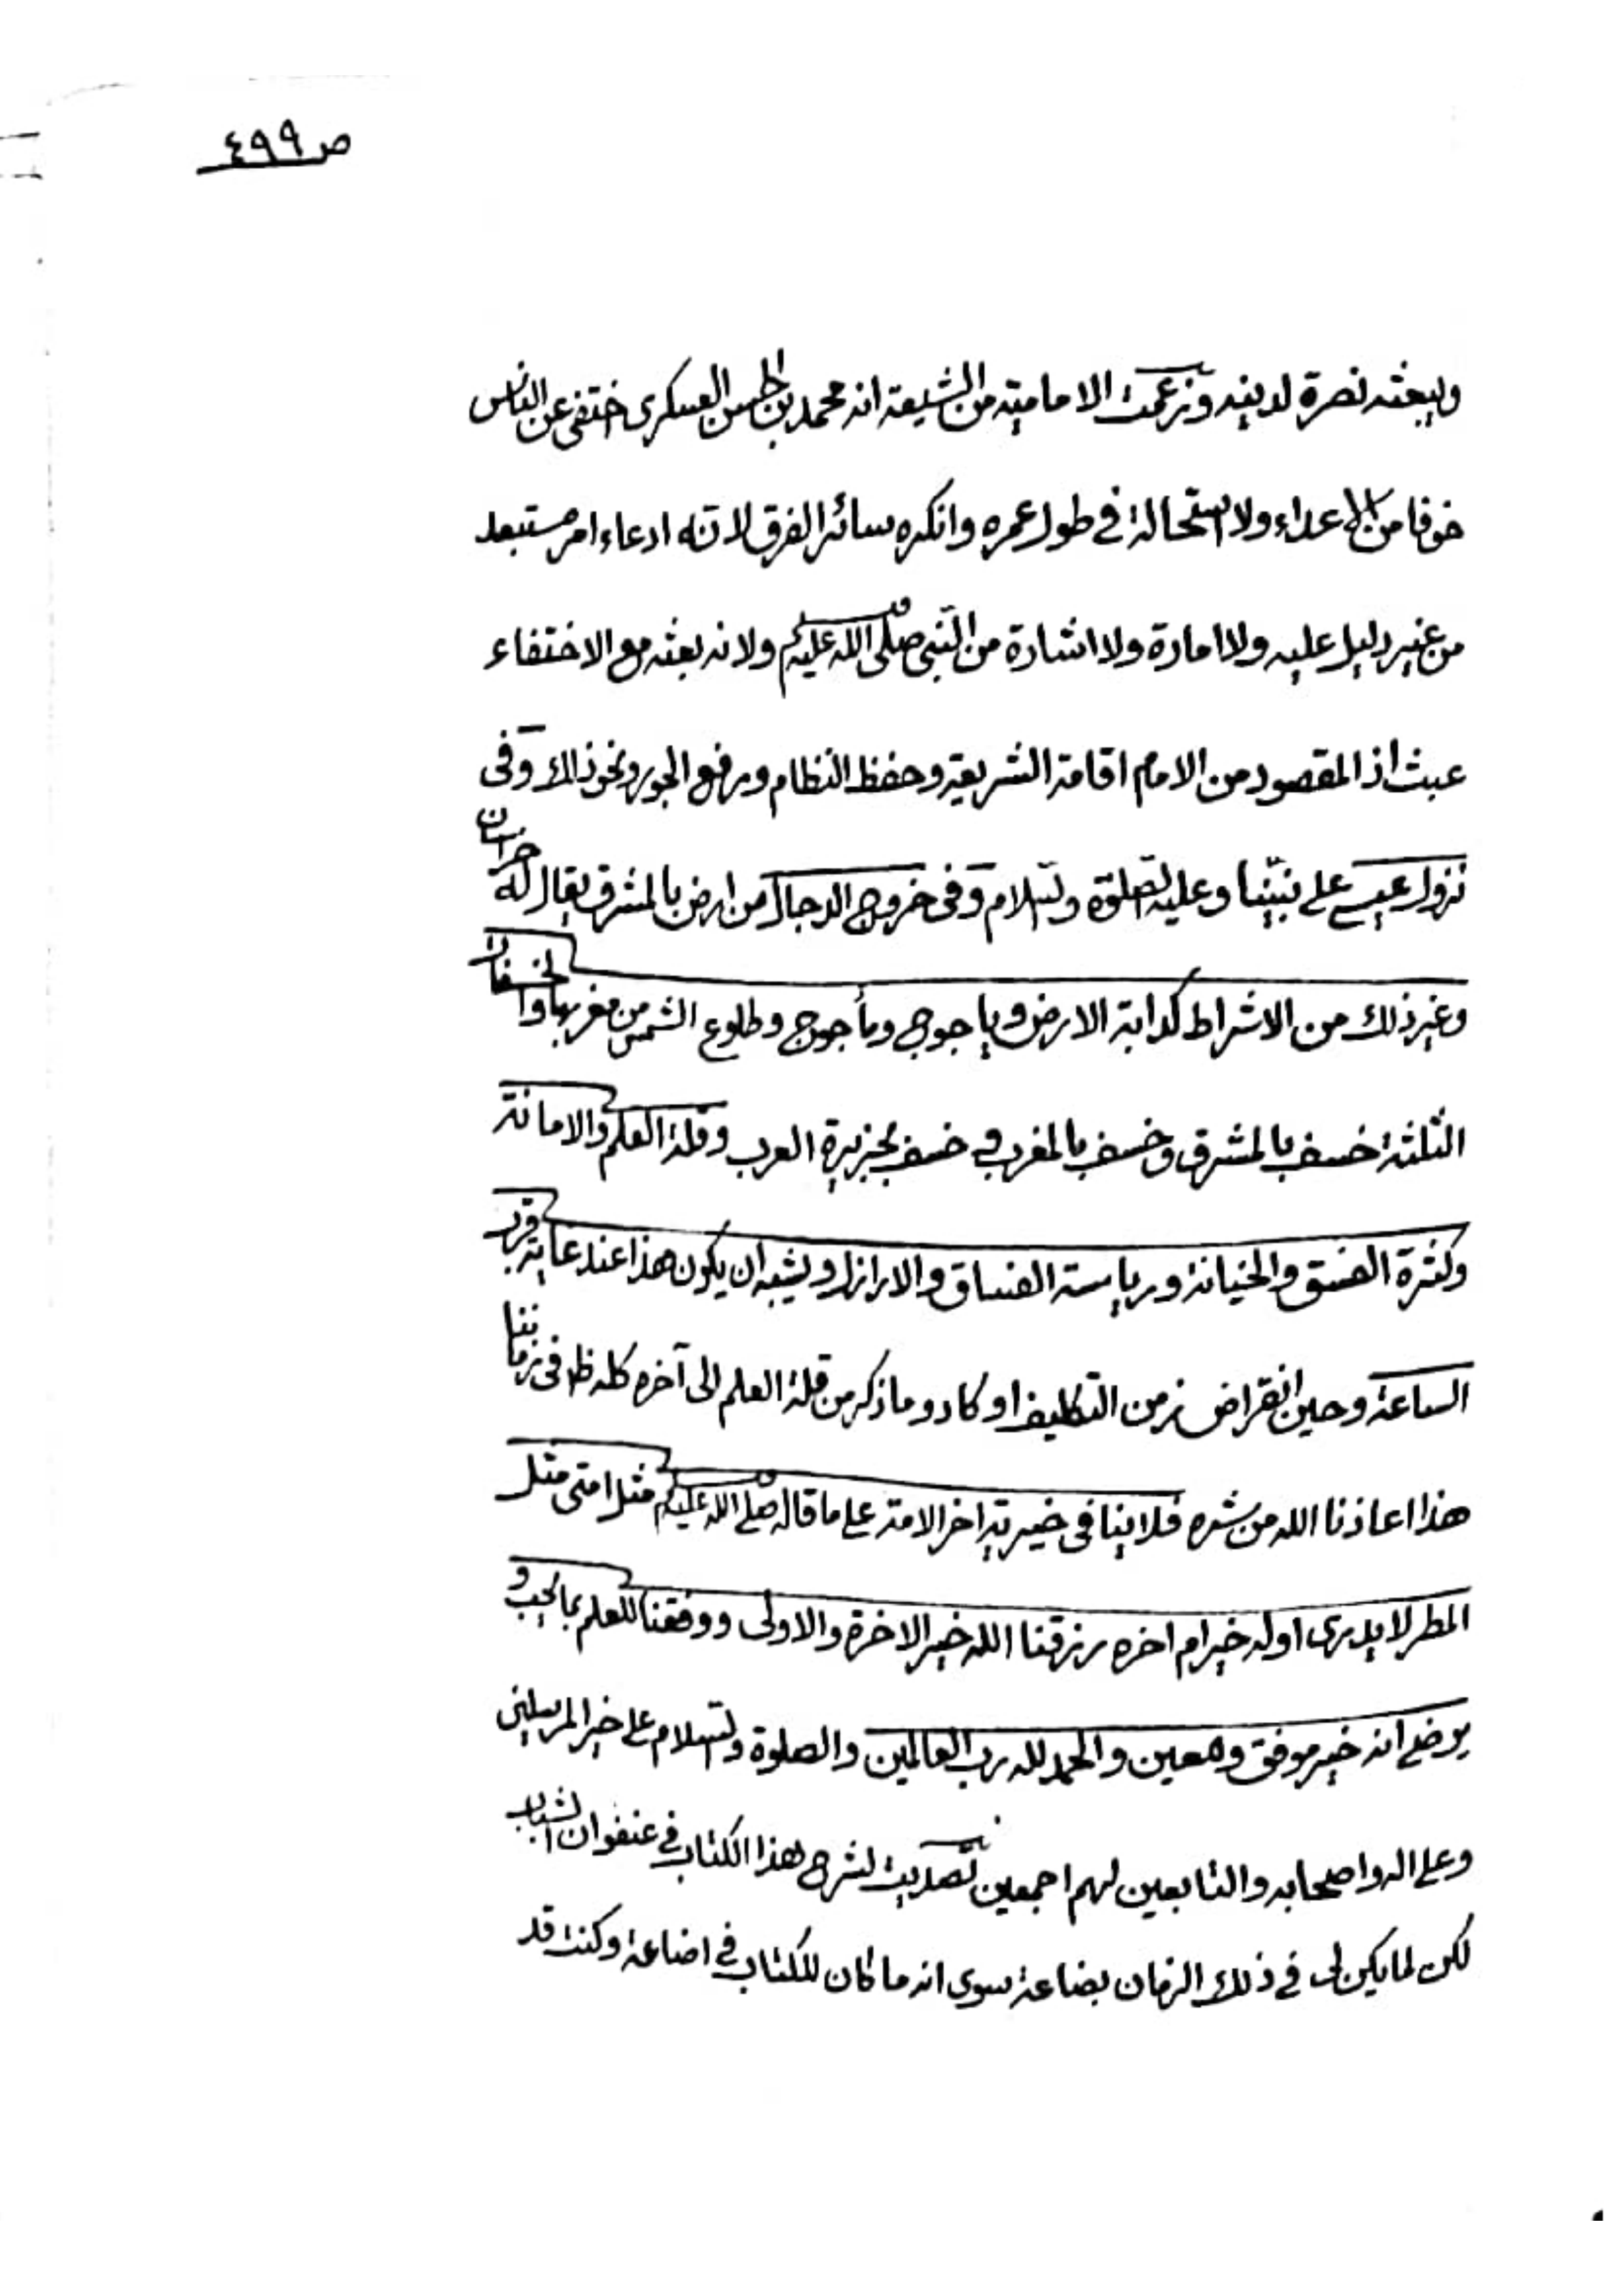 ص ٤٩٩
ويبعثه نصرة لدينه وزعمت الامامية من الشيعة انه محمد بن الحسن العسكرى اختفى عن الناس
خوفا من الاعداء ولا استحالة في طول عمره وانكره سائر الفرق لانه ادعاء امر مستبعد
من غير دليل عليه ولا امارة ولا اشارة من النبى صلى الله عليه وسلم ولانه بعثه مع الاختفاء
عبث اذ المقصود من الامام اقامة الشريعة وحفظ النظام ورفع الجور ونحو ذالك وفى
نزول عيسى على نبينا وعليه الصلوة والسلام وفى خروج الدجال من ارض بالمشرق يقال له خراسان
وغير ذلك من الاشراط كدابة الارض و يأجوج ومأجوج وطلوع الشمس من مغربها والخسفات
الثلثة خسف بالمشرق وخسف بالمغرب و خسف بجزيرة العرب وقلة العلم والامانة
وكثرة الفسق والخيانة ورياسة الفساق والاراذل ويشبه ان يكون هذا عند غاية قرب
الساعة وحين انقراض زمن التكليف او كاد وما ذكر من قلة العلم الى آخره كله ظ فى زماننا
هذا اعاذنا الله من شره فلا ينافى خيرية اخر الامة على ما قاله صلى الله عليه وسلم مثل امتى مثل
المطر لا يدرى اوله خير ام اخره رزقنا الله خير الاخرة والاولى ووفقنا للعلم بما يحب و
يرضى انه خير موفق ومعين والحمد لله رب العالمين والصلوة والسلام على خير المرسلين
وعلى اله واصحابه والتابعين لهم اجمعين تصديت لشرح هذا الكتاب في عنفوان الشباب
لكن لما يكن لى في ذلك الزمان بضاعة سوى انه ما كان للكتاب في اضاعة وكنت قد